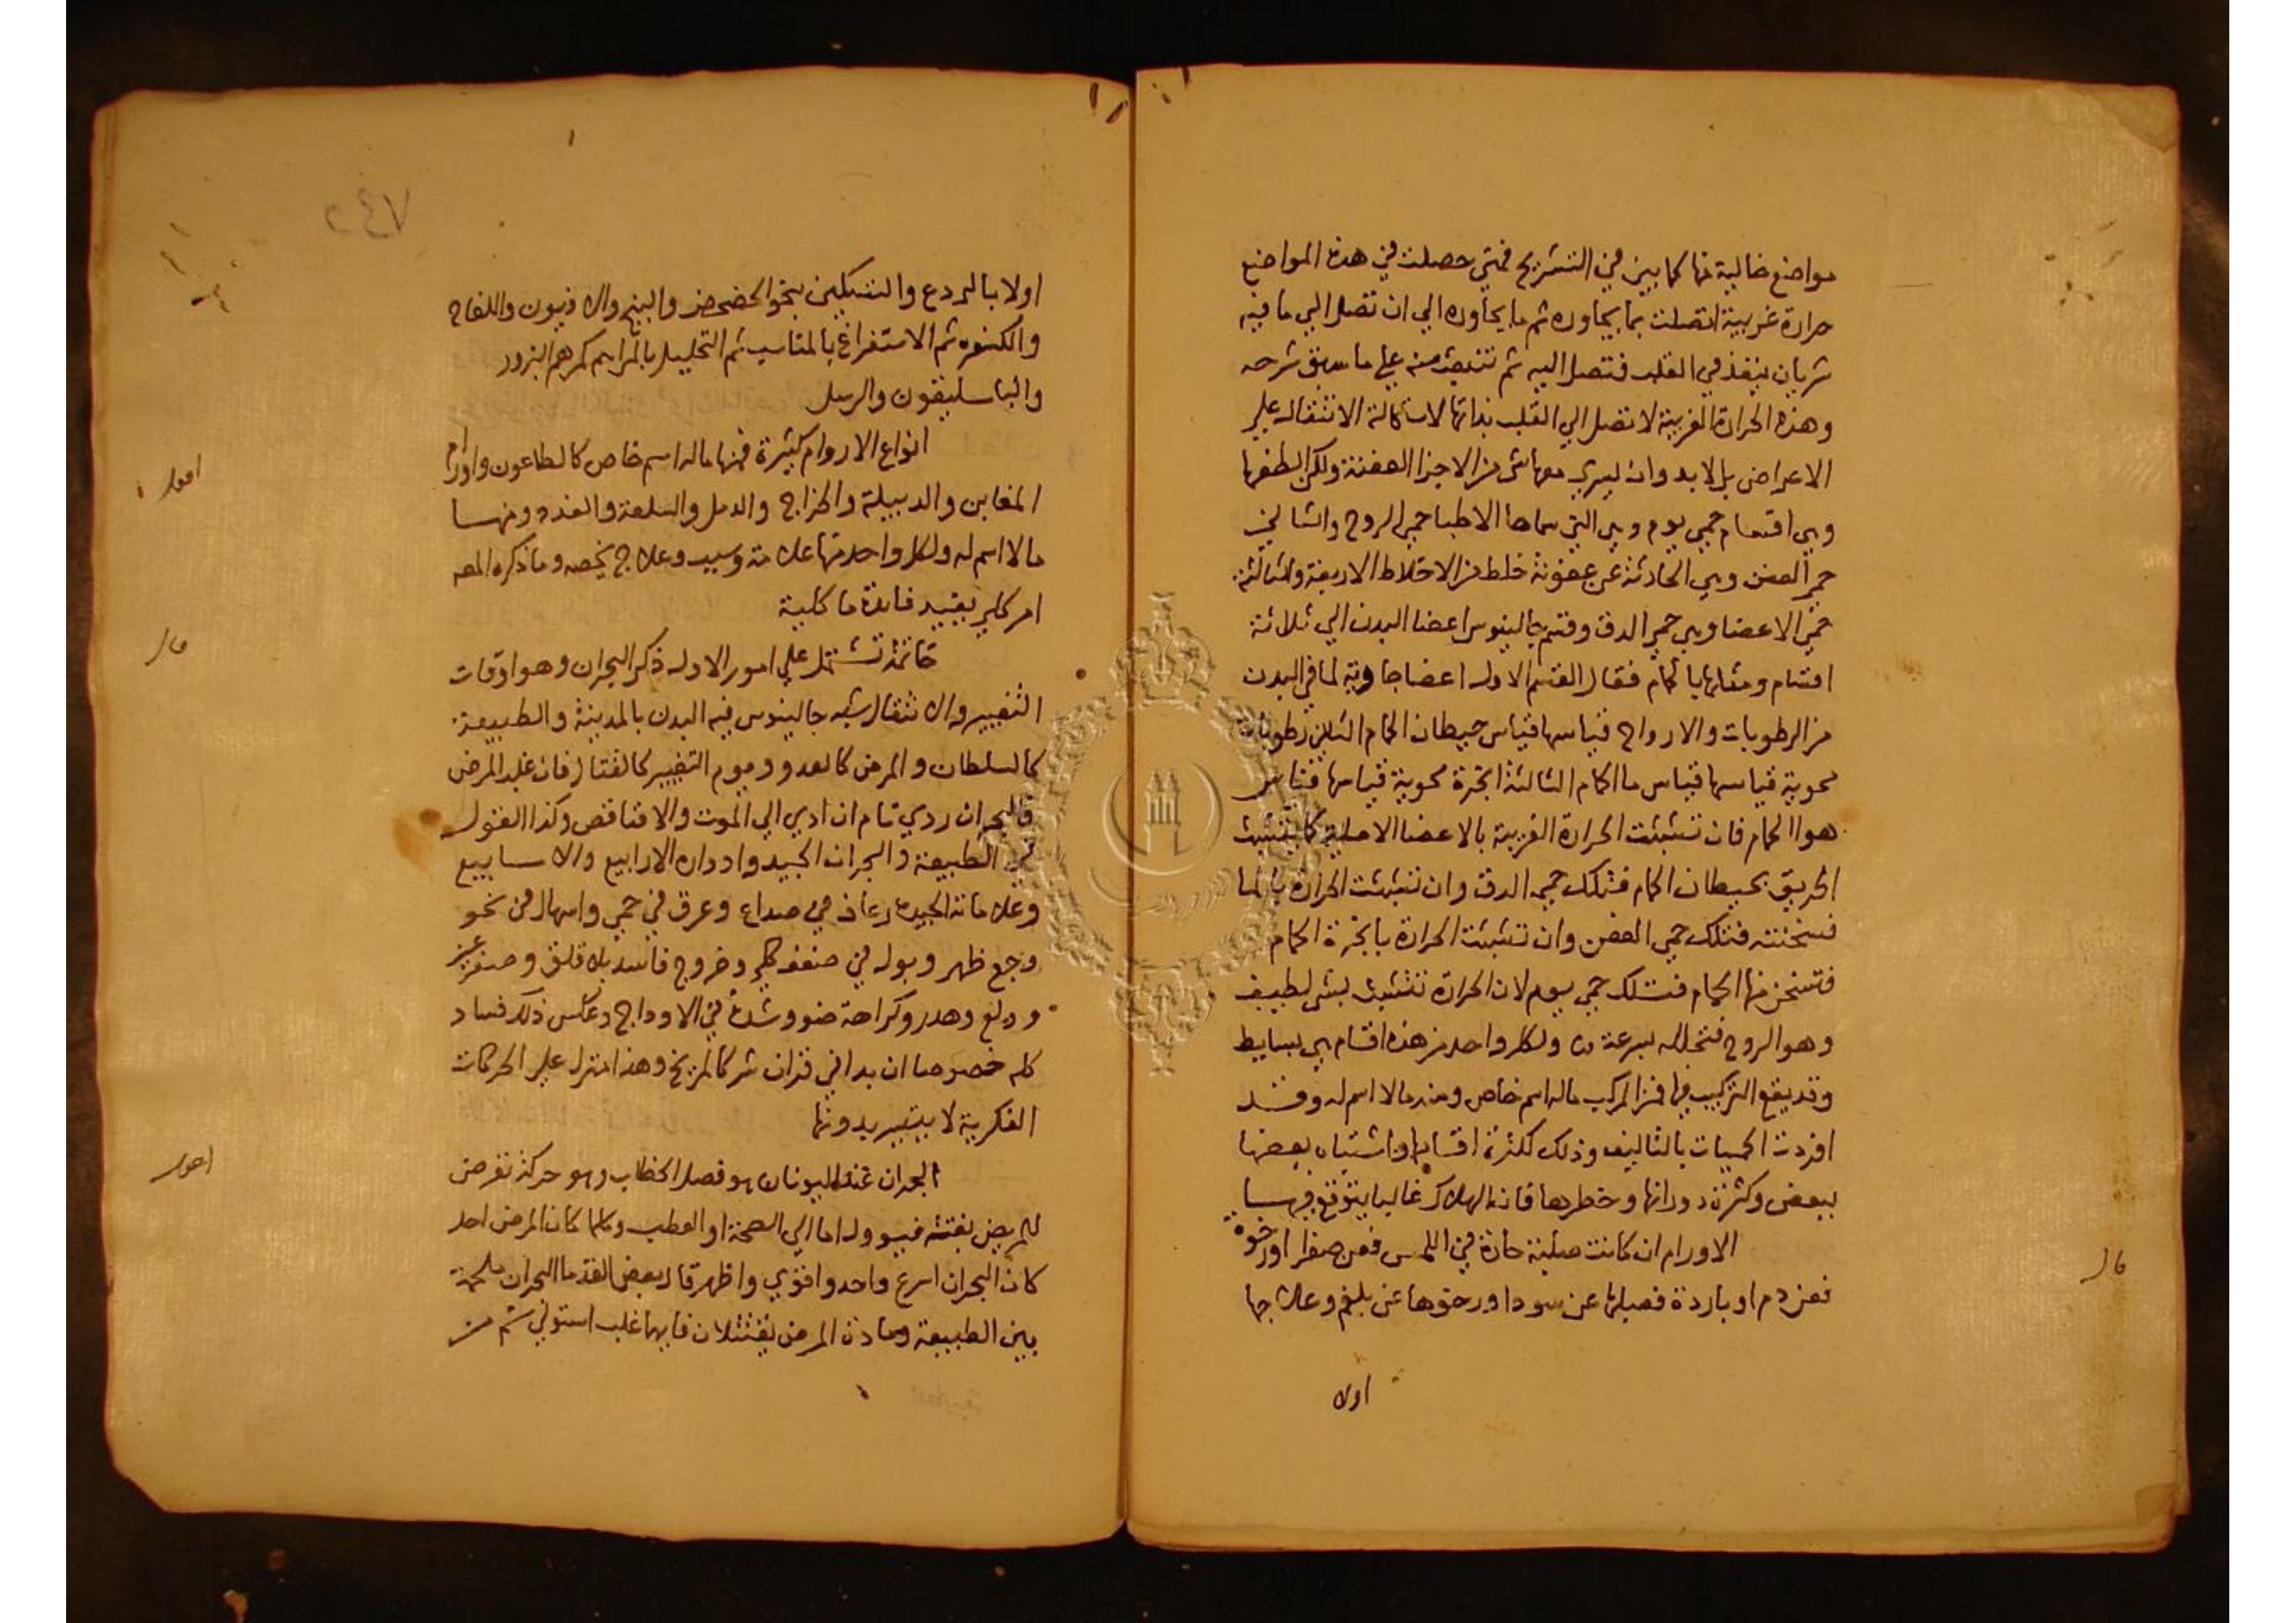 مواضع خالية منها كما بين في التشريح فمتى حصلت في هذه المواضع
حرارة غريبة اتصلت بما يجاوره ثم ما يجاوره الي ان تصل الي ما فيه
شريان ينفذ في القلب فتتصل اليه ثم تنبعث منه علي ما سبق شرحه
وهذه الحرارة الغريبة لا تصل الي القلب بذاتها لاستحالة الانتقال علي
الاعراض بل لا بد وان يسري معها شي من الاجزا العفنة ولكن الطفها
وهي اقسام حمي يوم وهي التي سماها الاطبا حمي الروح والثاني
حمي العفن وهي الحادثة عن عفونة خلط من الاخلاط الاربعة والثالثة
حمي الاعضا وهي حمي الدق وقسم جالينوس اعضا البدن الي ثلاثة
اقسام ومثلها بالحمام فقال القسم الاول اعضا حاوية لما في البدن
من الرطوبات والارواح قياسها قياس حيطان الحمام الثاني رطوبات
محوية قياسها قياس ما الحمام الثالثة ابخرة محوية قياسها قياس
هوا الحمام فان تشبثت الحرارة الغريبة بالاعضا الاصلية كما يتشبث
الحريق بحيطان الحمام فتلك حمي الدق وان تشبثت الحرارة بالما
فسخنته فتلك حمي العفن وان تشبثت الحرارة بابخرة الحمام
فتسخن منها الحمام فتلك حمي يوم لان الحرارة تتشبث بشي لطيف
وهو الروح فتحلله بسرعة ولكل واحد من هذه اقسام هي بسايط
وقد يقع التركيب فيها فمن المركب ماله اسم خاص ومنه مالا اسم له وقد
افردت الحميات بالتاليف وذلك لكثرة اقسامها واشتباه بعضها
ببعض وكثرة دورانها وخطرها فانه الهلاك غالبا يتوقع فيها
الاورام ان كانت صلبة حارة في اللمس فعن صفرا او رخوة
قال
فعن دم او باردة فصلبها عن سودا ورخوها عن بلغم وعلاجها
اولا
٧٤٢
اولا بالردع والتسكين بنحو الحضحض والبنج والافيون واللفاح
والكسفره ثم الاستفراغ بالمناسب ثم التحليل بالمراهم كمرهم البزور
والباسليقون والرسل
انواع الاورام كثيرة فمنها ماله اسم خاص كالطاعون واورام
اقول
المغابن والدبيلة والخراج والدمل والسلعة والغدد ومنها
مالا اسم له ولكل واحد منها علامة وسبب وعلاج يخصه وما ذكره المصـ
امر كلي يفيد فايدة ما كلية
خاتمة تشتمل علي امور الاول ذكر البحران وهو اوقات
قال
التغيير والانتقال شبه جالينوس فيه البدن بالمدينة والطبيعة
كالسلطان والمرض كالعدو ويوم التغيير كالقتال فان غلب المرض
فالبحران ردي تام ان ادي الي الموت والا فناقص وكذا القول
في الطبيعة والبحران الجيد وادواره الارابيع والاسابيع
وعلامات الجيد رعاف في صداع وعرق في حمي واسهال في نحو
وجع ظهر وبول في ضعف كلي وخروج فاسد بلا قلق وضعف
وولع وهدر وكراهة ضو وشدة في الاوداج وعكس ذلك فساد
كله خصوصا ان بدا في قران شر كالمريخ وهذا منزل علي الحركات
الفكرية لا يتيسر بدونها
البحران عند اليونان هو فصل الخطاب وهو حركة تعرض
اقول
للمريض بغتة فيوول اما الي الصحة او العطب وكلما كان المرض احد
كان البحران اسرع واحد واقوي واظهر قال بعض القدما البحران ملحمة
بين الطبيعة ومادة المرض يقتتلان فايهما غلب استولي ثم من